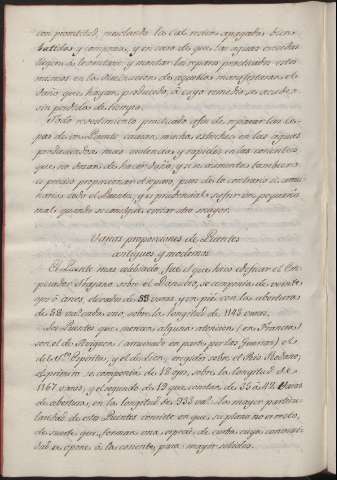 con prontitud, mezclando la cal recien apagada, bien
batidas y compuesta, y en caso de que las aguas crecidas
lleguen à levantarse y montar los reparos practicados estas
mismas en la disminucion de aquellas manifestaran el
daño que hayan producido, à cuyo remedio se acudirà
sin perdida de tiempo.
Todo revestimiento practicado afin de reparar las ce-
pas de un Puente causan mucha estrechez en las aguas
produciendolas mas violentas y rapidas en las corrientes
que no dexan de hacer daño, y si no aumentar tambien
es preciso proporcionar el reparo, pues de lo contrario se arrui-
naria todo el Puente, y es prudencia sufrir un pequeño
mal, quando se consigue evitar otro mayor.
Varias proporciones de Puentes
antiguos y modernos
El Puente mas celebrado fue el que hizo edificar el Em-
perador Trajano sobre el Danubio, se componia de veinte
ojos ò arcos, elevados de 53 varas, y un pie con las aberturas
de 58 var.s cada uno, sobre la longitud de 1143 varas.
Los Puentes que merecen alguna atencion (en Francia)
son el de Aviñon (arruinado en parte por las Guerras) el
de S.ti Espiritu, y el de Leon, erigidos sobre el Rio Rodano,
el primero se componia de 18 ojos, sobre la longitud de
1167 varas, y el segundo de 19 que constan de 35 à 42 Varas
de abertura, en la longitud de 933 var.s La mayor particu-
laridad de estos Puentes consiste en que su planta no es recta,
de suerte que forman una especie de curba cuya convexi-
dad se opone à la corriente para mayor solidez.